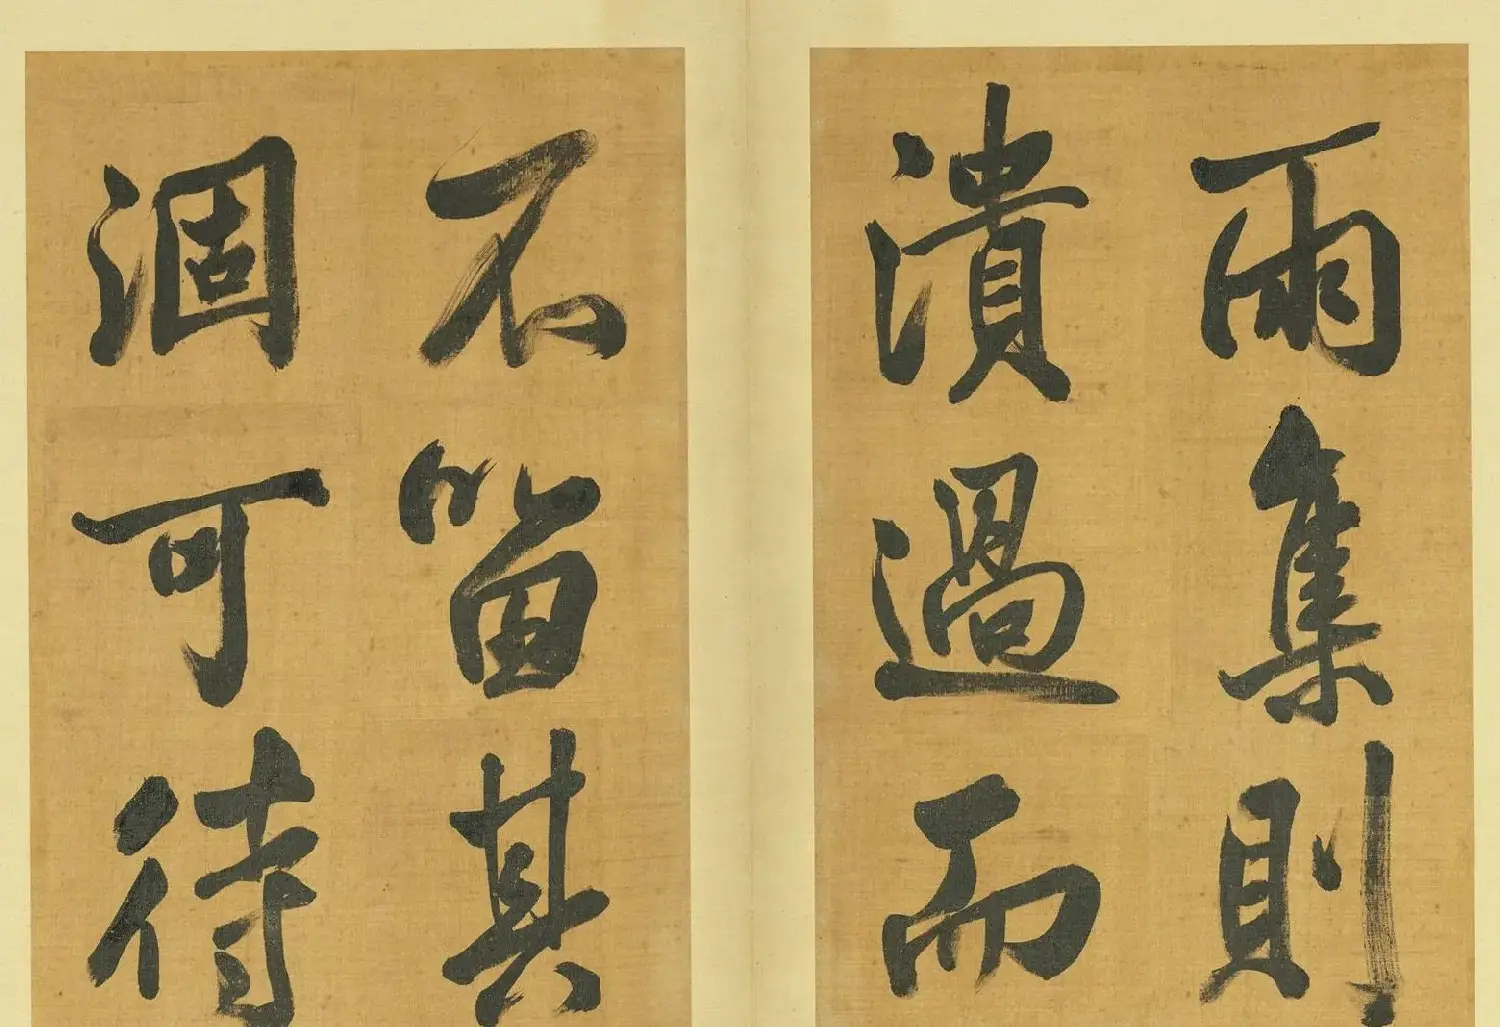 雨集則
潰過而
不留其
涸可待